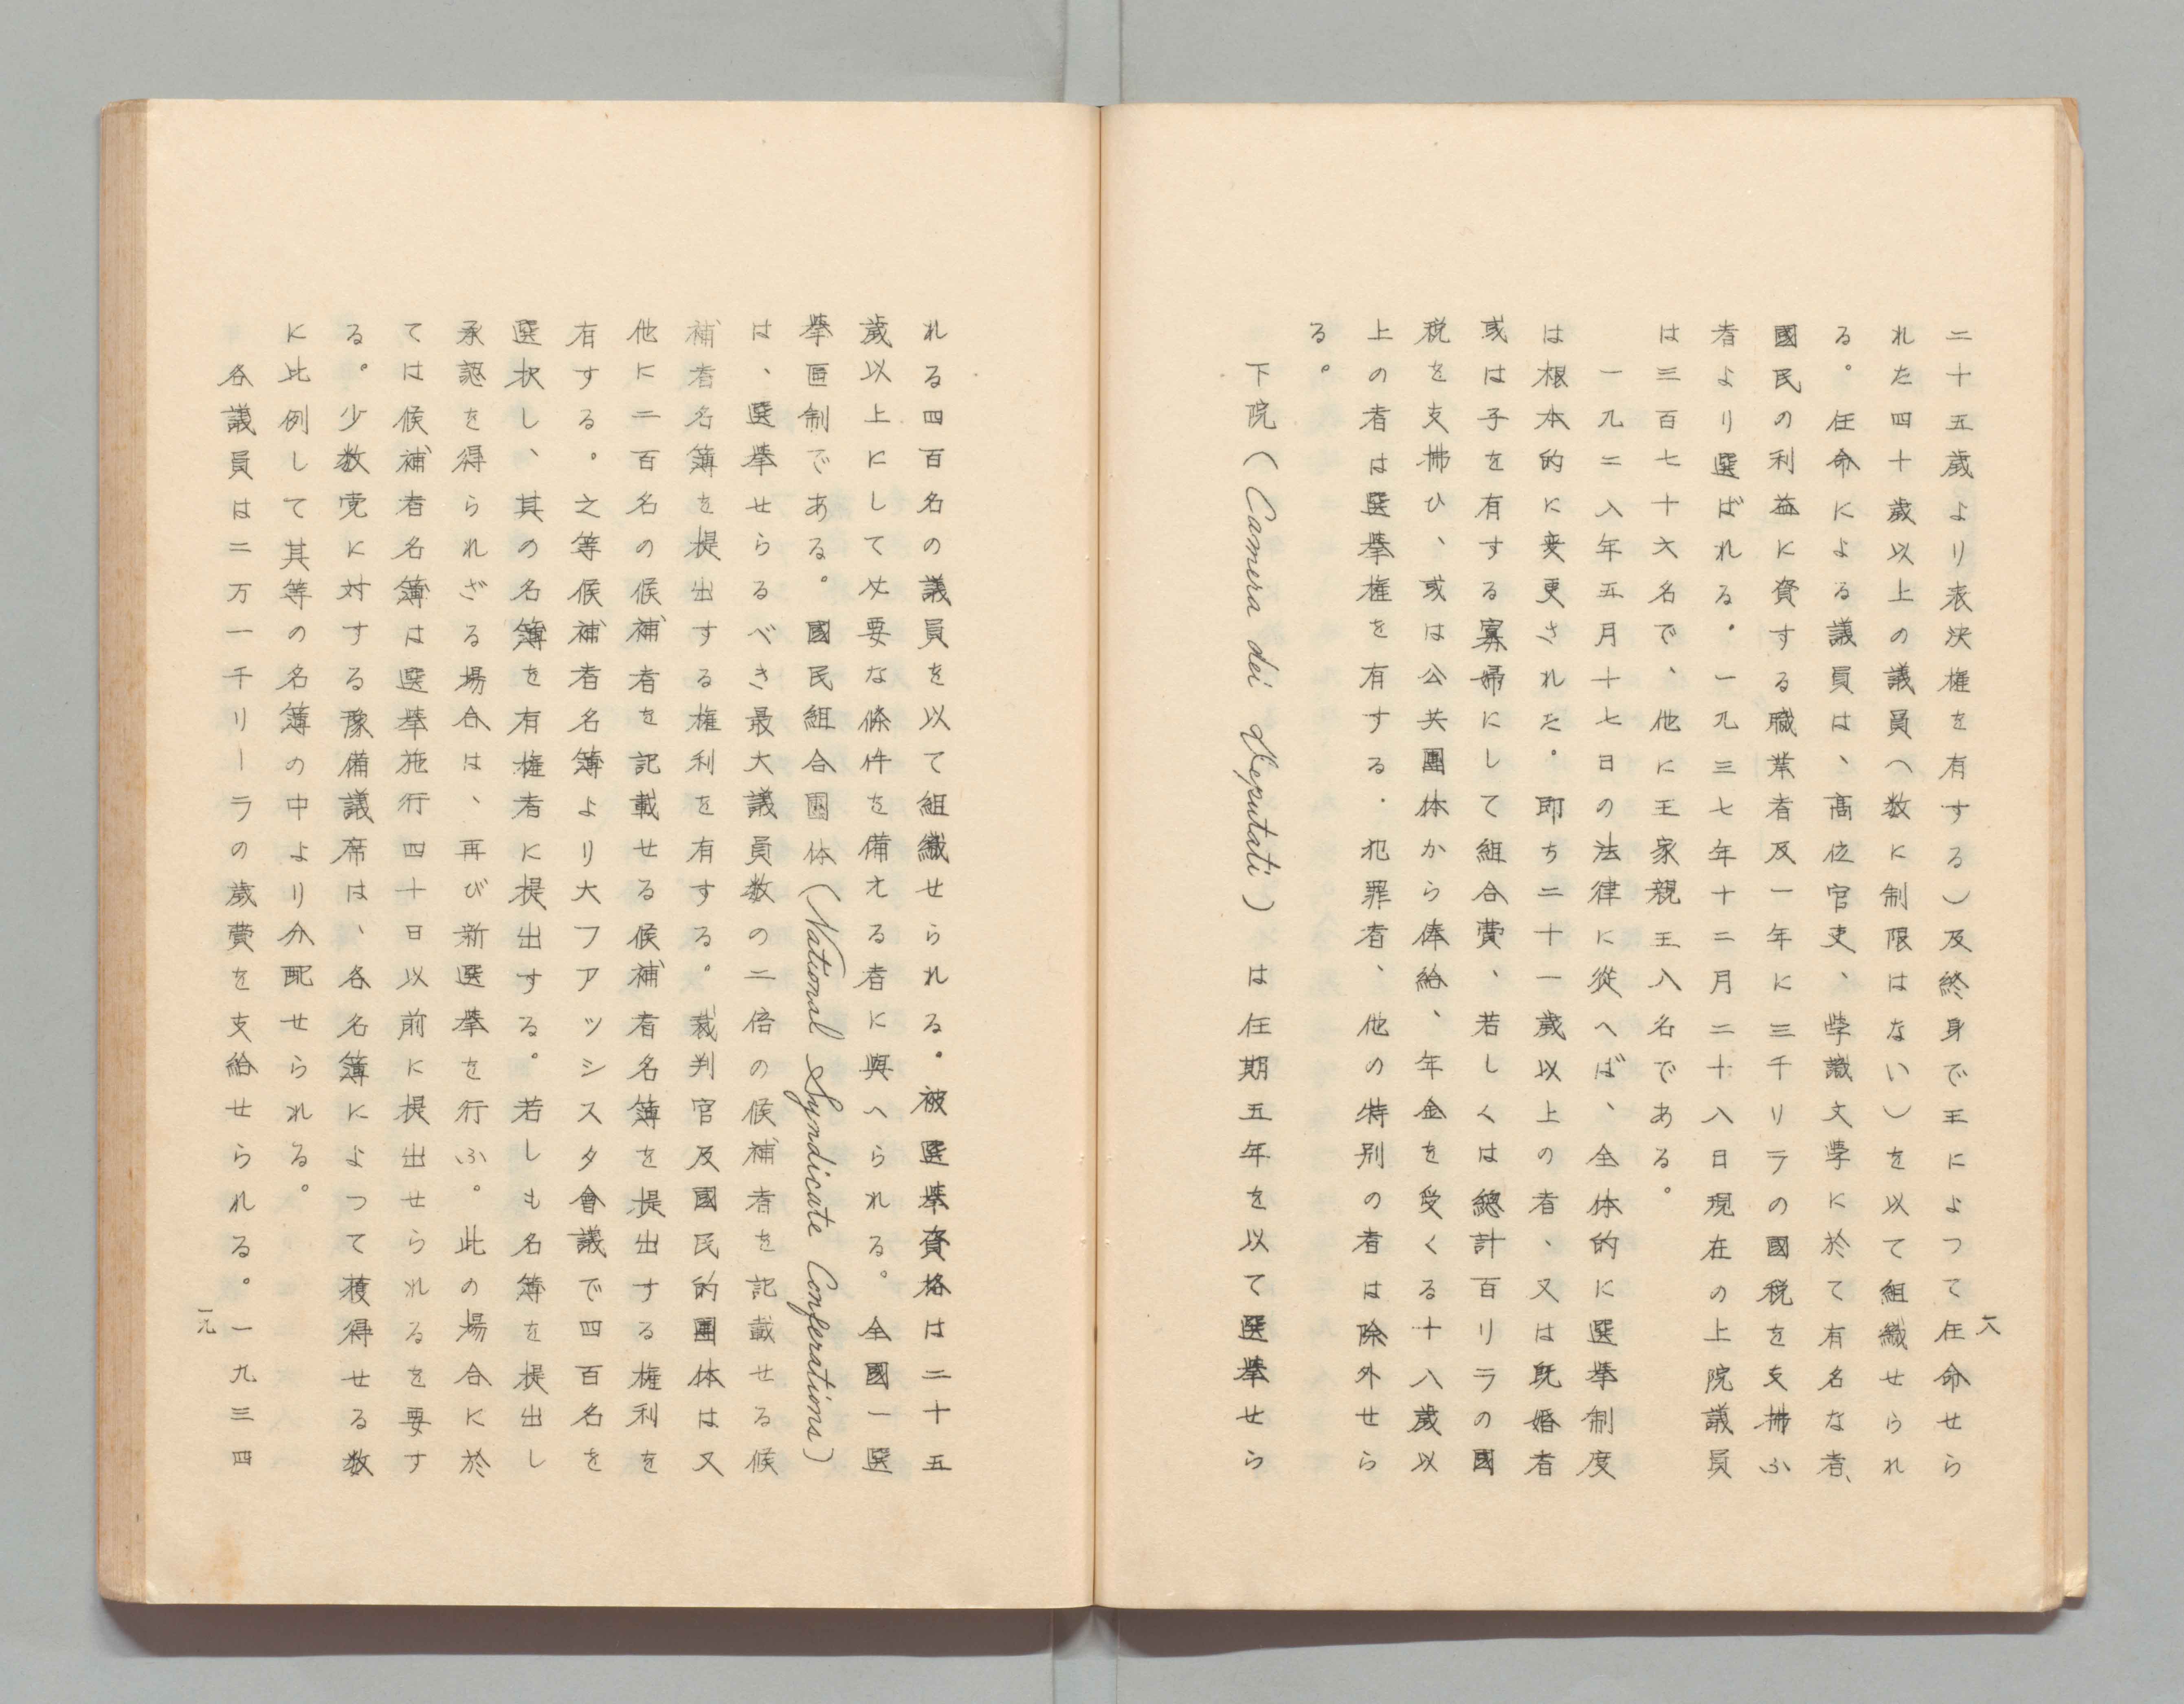 二十五歳より表決権を有する)及終身で王によつて任命せら
れた四十歳以上の議員(数に制限はない)を以て組織せられ
る。任命による議員は、高位官吏、学識文学に於て有名な者、
國民の利益に資する職業者及一年に三千リラの國税を支拂ふ
者より選ばれる。一九三七年十二月二十八日現在の上院議員
は三百七十六名で、他に王家親王八名である。
一九二八年五月十七日の法律に従へば、全体的に選挙制度
は根本的に変更された。即ち二十一歳以上の者、又は既婚者
或は子を有する寡婦にして組合費、若しくは総計百リラの國
税を支拂ひ、或は公共團体から俸給、年金を受くる十八歳以
上の者は選挙権を有する。犯罪者、他の特別の者は除外せら
る。
下院(Camera dei Deputati)は任期五年を以て選挙せら
一八
れる四百名の議員を以て組織せられる。被選挙資格は二十五
歳以上にして必要な條件を備える者に與へられる。全國一選
挙区制である。國民組合團体(National Syndicate Conferations)
は、選挙せらるべき最大議員数の二倍の候補者を記載せる候
補者名簿を提出する権利を有する。裁判官及國民的團体は又
他に二百名の候補者を記載せる候補者名簿を提出する権利を
有する。之等候補者名簿より大フアツシスタ會議で四百名を
選択し、其の名簿を有権者に提出する。若しも名簿を提出し
承認を得られざる場合は、再び新選挙を行ふ。此の場合に於
ては候補者名簿は選挙施行四十日以前に提出せられるを要す
る。少数党に対する豫備議席は、各名簿によつて獲得せる数
に比例して其等の名簿の中より分配せられる。
各議員は二万一千リーラの歳費を支給せられる。一九三四
一九